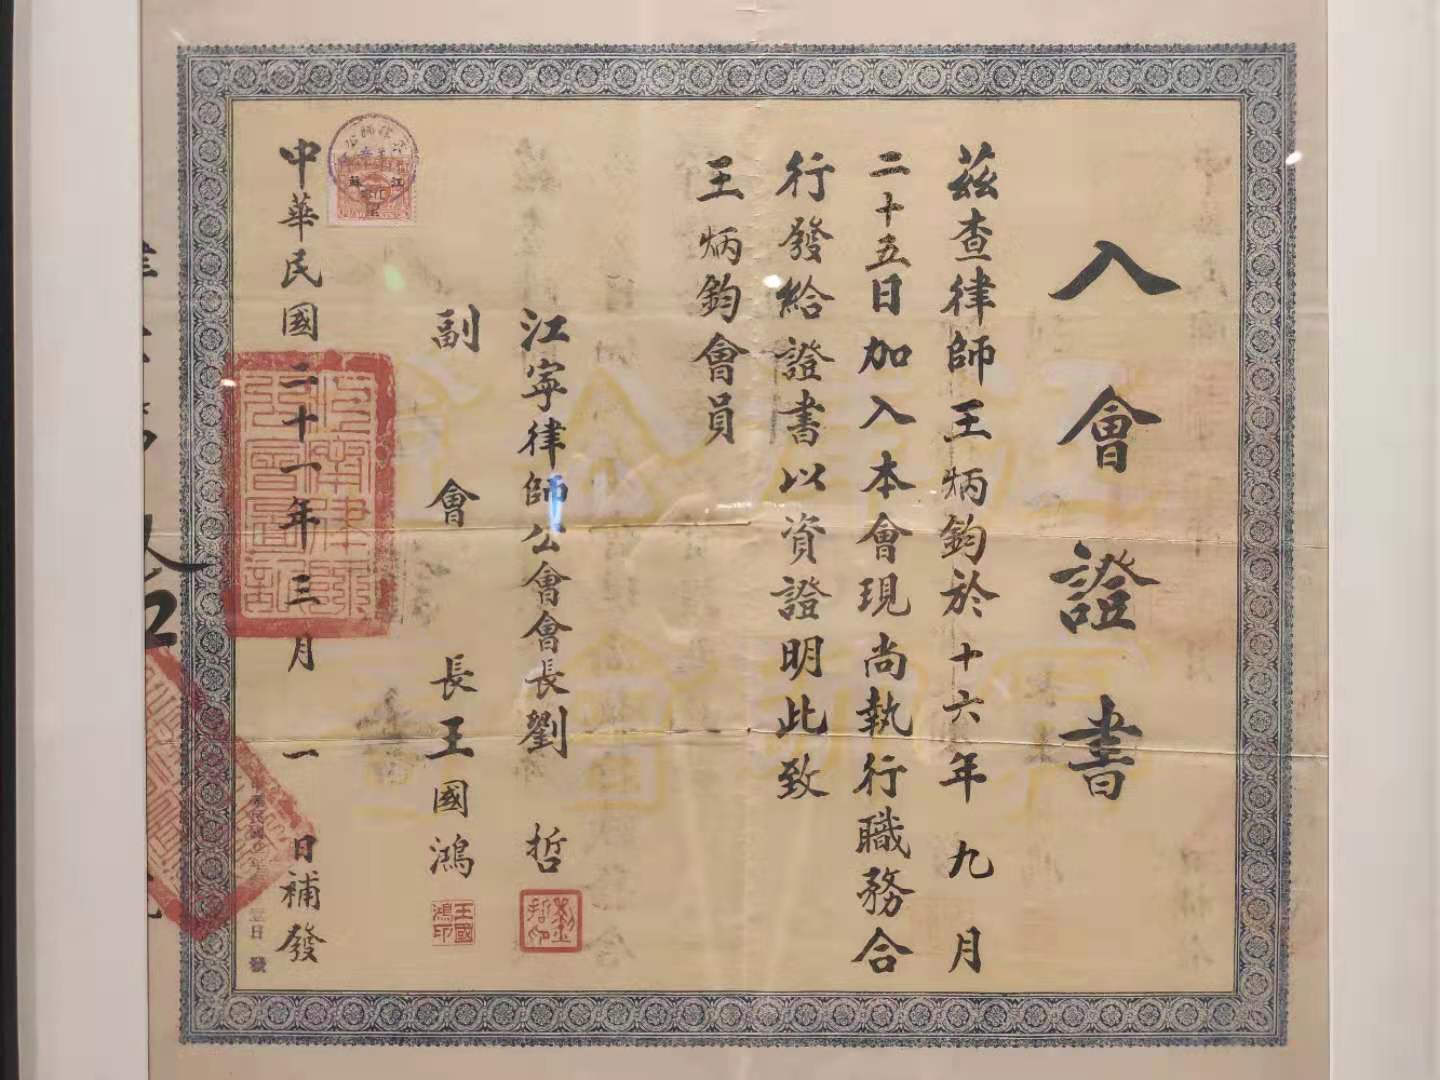 入會證書
茲查律師王炳鈞於十六年九月
二十五日加入本會現尚執行職務合
行發給證書以資證明此致
王炳鈞會員
江寧律師公會會長劉哲
劉哲印
副會長王國鴻
王國鴻印
中華民國二十一年三月一日補發
江寧律師公會圖記